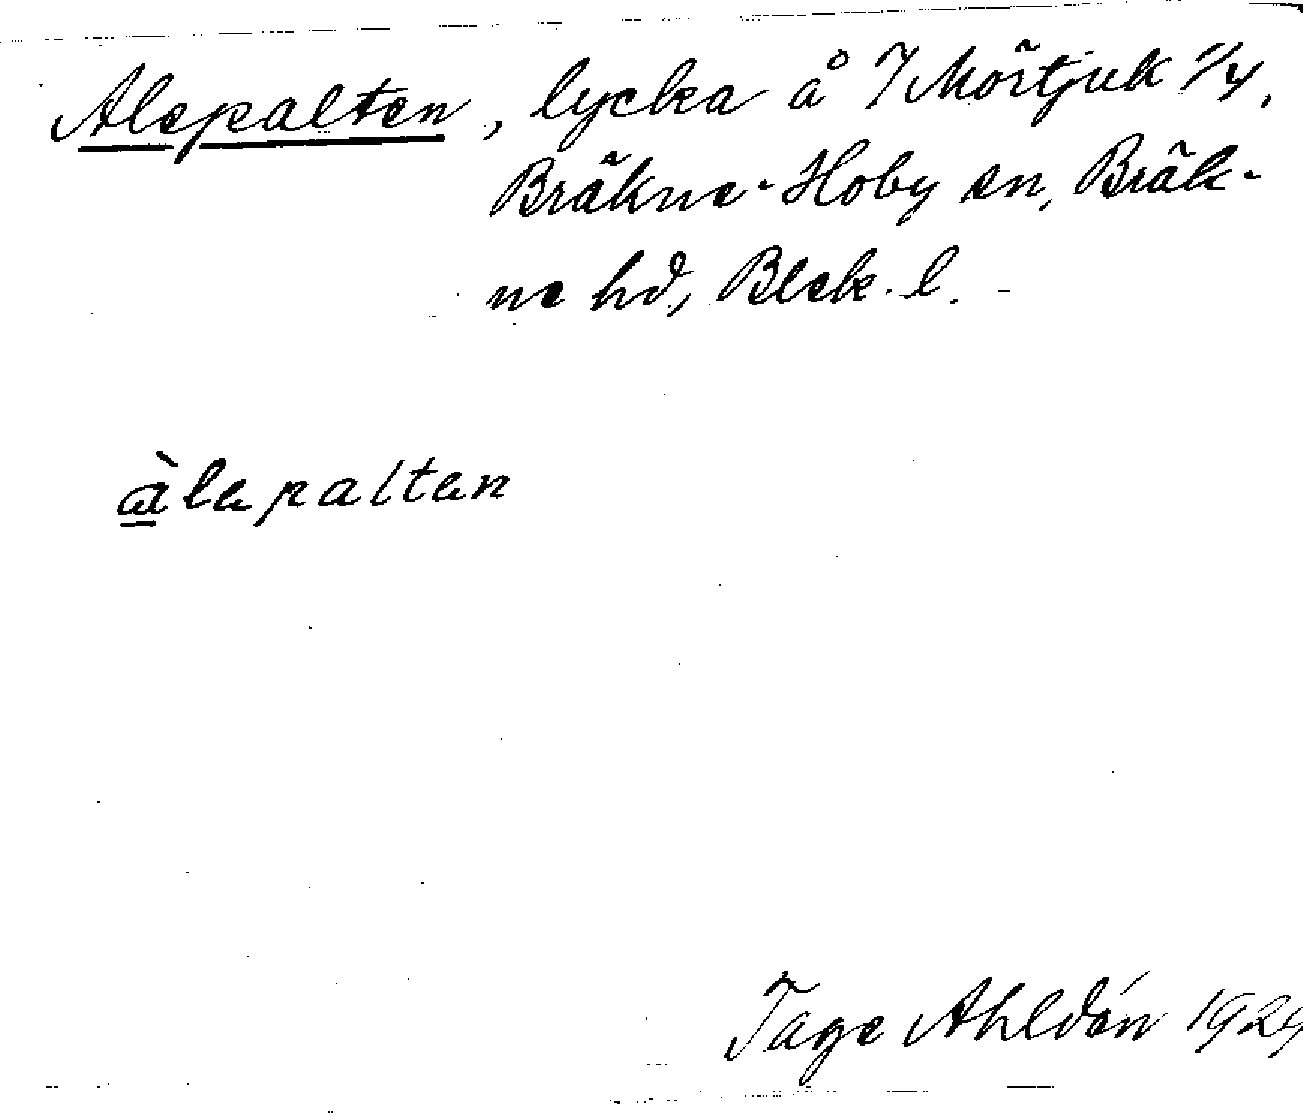 Alepalten, lycka å 7 Mörtjuk 1/4,
Bräkne-Hoby sn, Bräk-
ne hd, Blek. l. -
àlepalten
Tage Ahldén 1929